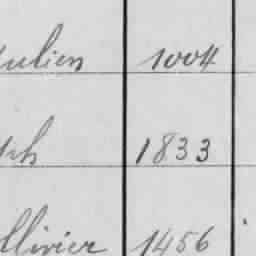 ulien 1004
ph 1833
llivier 1456